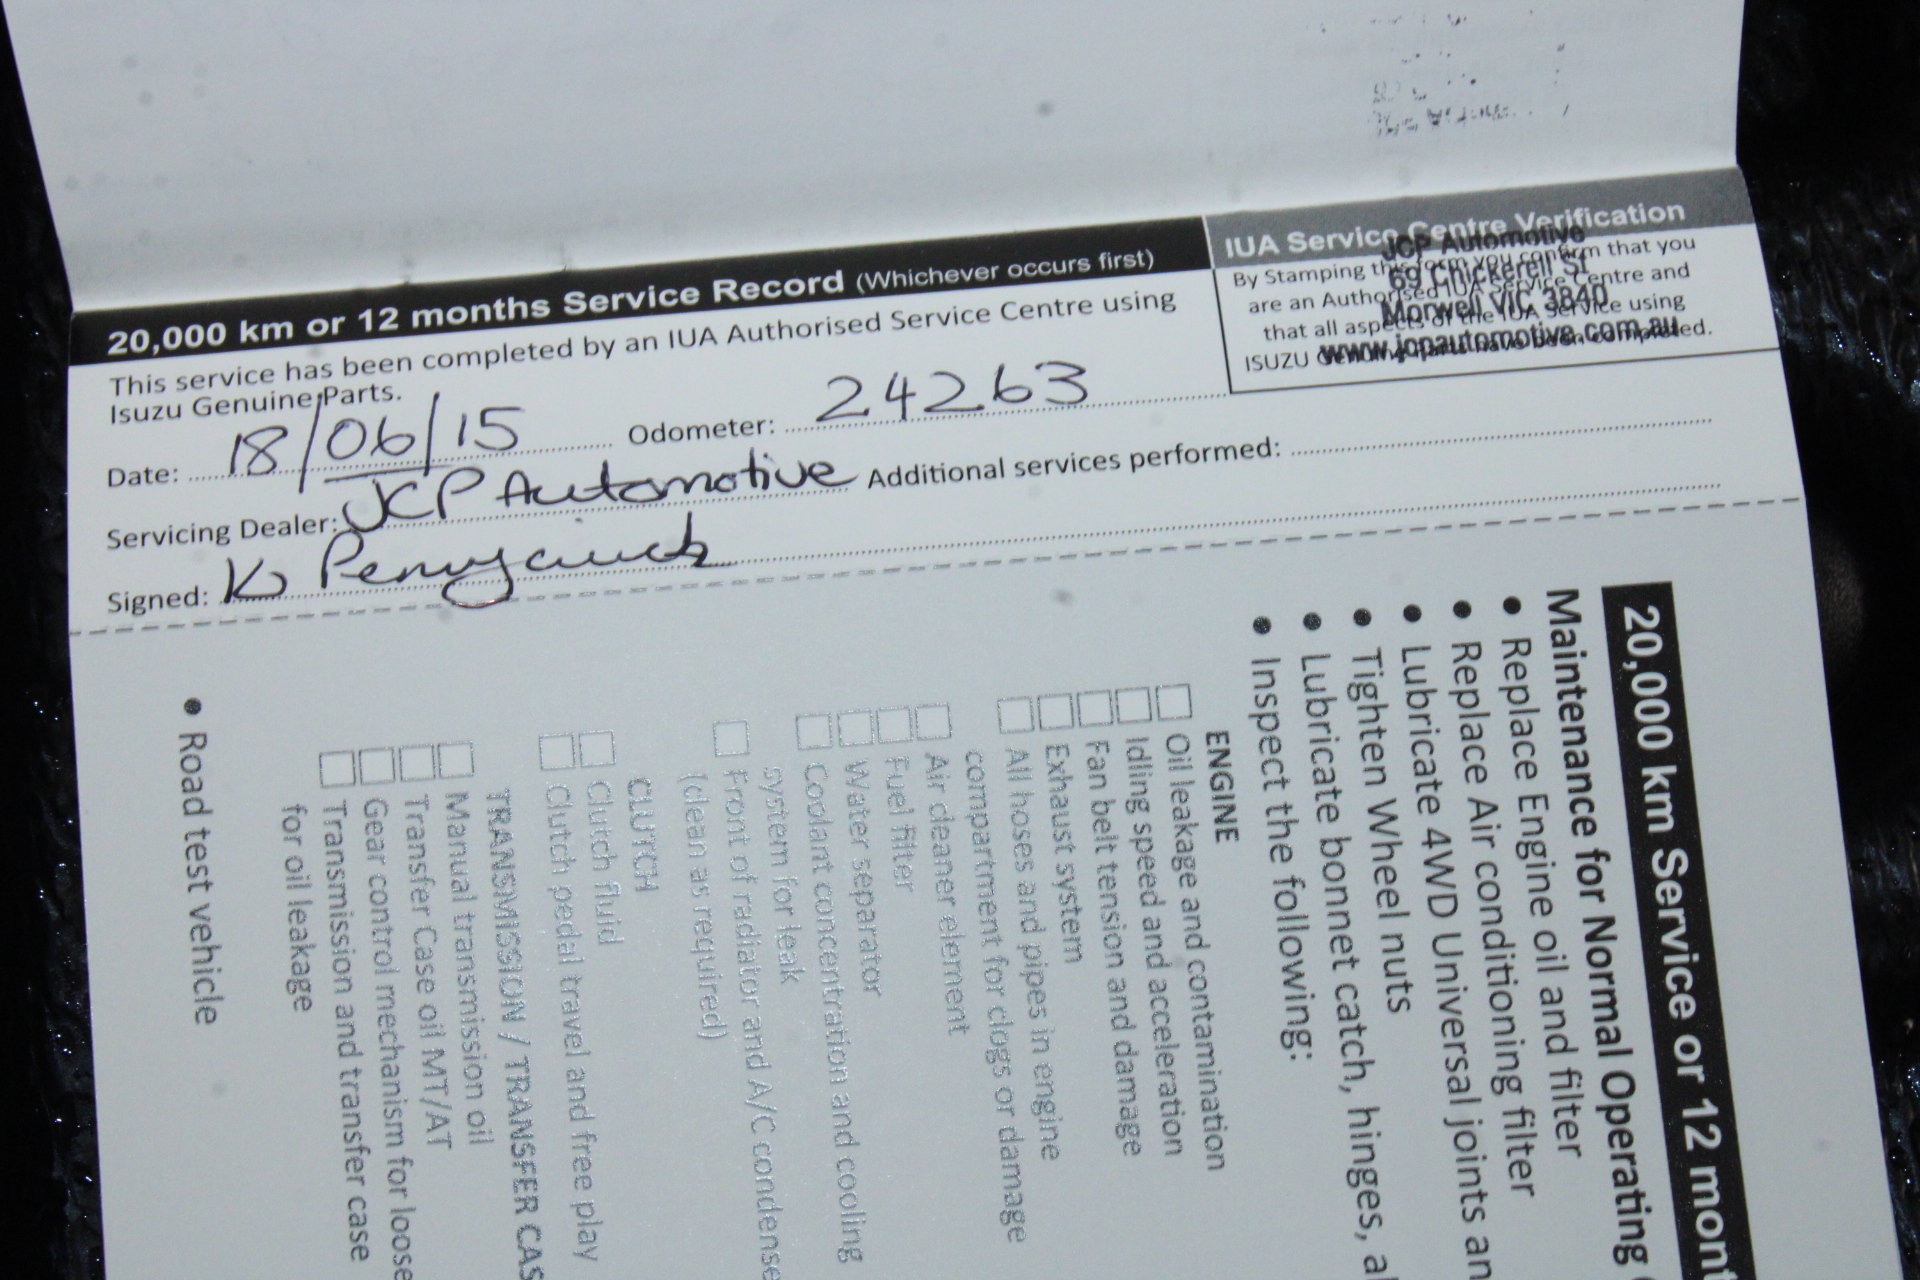 20,000 km or 12 months Service Record (Whichever occurs first)
This service has been completed by an IUA Authorised Service Centre using
Isuzu Genuine Parts.
Date: 18/06/15 Odometer: 24263
Servicing Dealer: JCP Automotive Additional services performed:
Signed: K
IUA Service Centre Verification
By Stamping this form you confirm that you
are an Authorised IUA Service Centre and
that all aspects of the IUA Service using
ISUZU Genuine parts have been completed.
JCP Automotive
69 Chickerell St
Morwell VIC 3840
www.jcpautomotive.com.au
20,000 km Service or 12 mont
Maintenance for Normal Operating
• Replace Engine oil and filter
• Replace Air conditioning filter
• Lubricate 4WD Universal joints an
• Tighten Wheel nuts
• Lubricate bonnet catch, hinges, al
• Inspect the following:
ENGINE
Oil leakage and contamination
Idling speed and acceleration
Fan belt tension and damage
Exhaust system
All hoses and pipes in engine
compartment for clogs or damage
Air cleaner element
Fuel filter
Water separator
Coolant concentration and cooling
system for leak
Front of radiator and A/C condense
(clean as required)
CLUTCH
Clutch fluid
Clutch pedal travel and free play
TRANSMISSION / TRANSFER CAS
Manual transmission oil
Transfer Case oil MT/AT
Gear control mechanism for loose
Transmission and transfer case
for oil leakage
• Road test vehicle